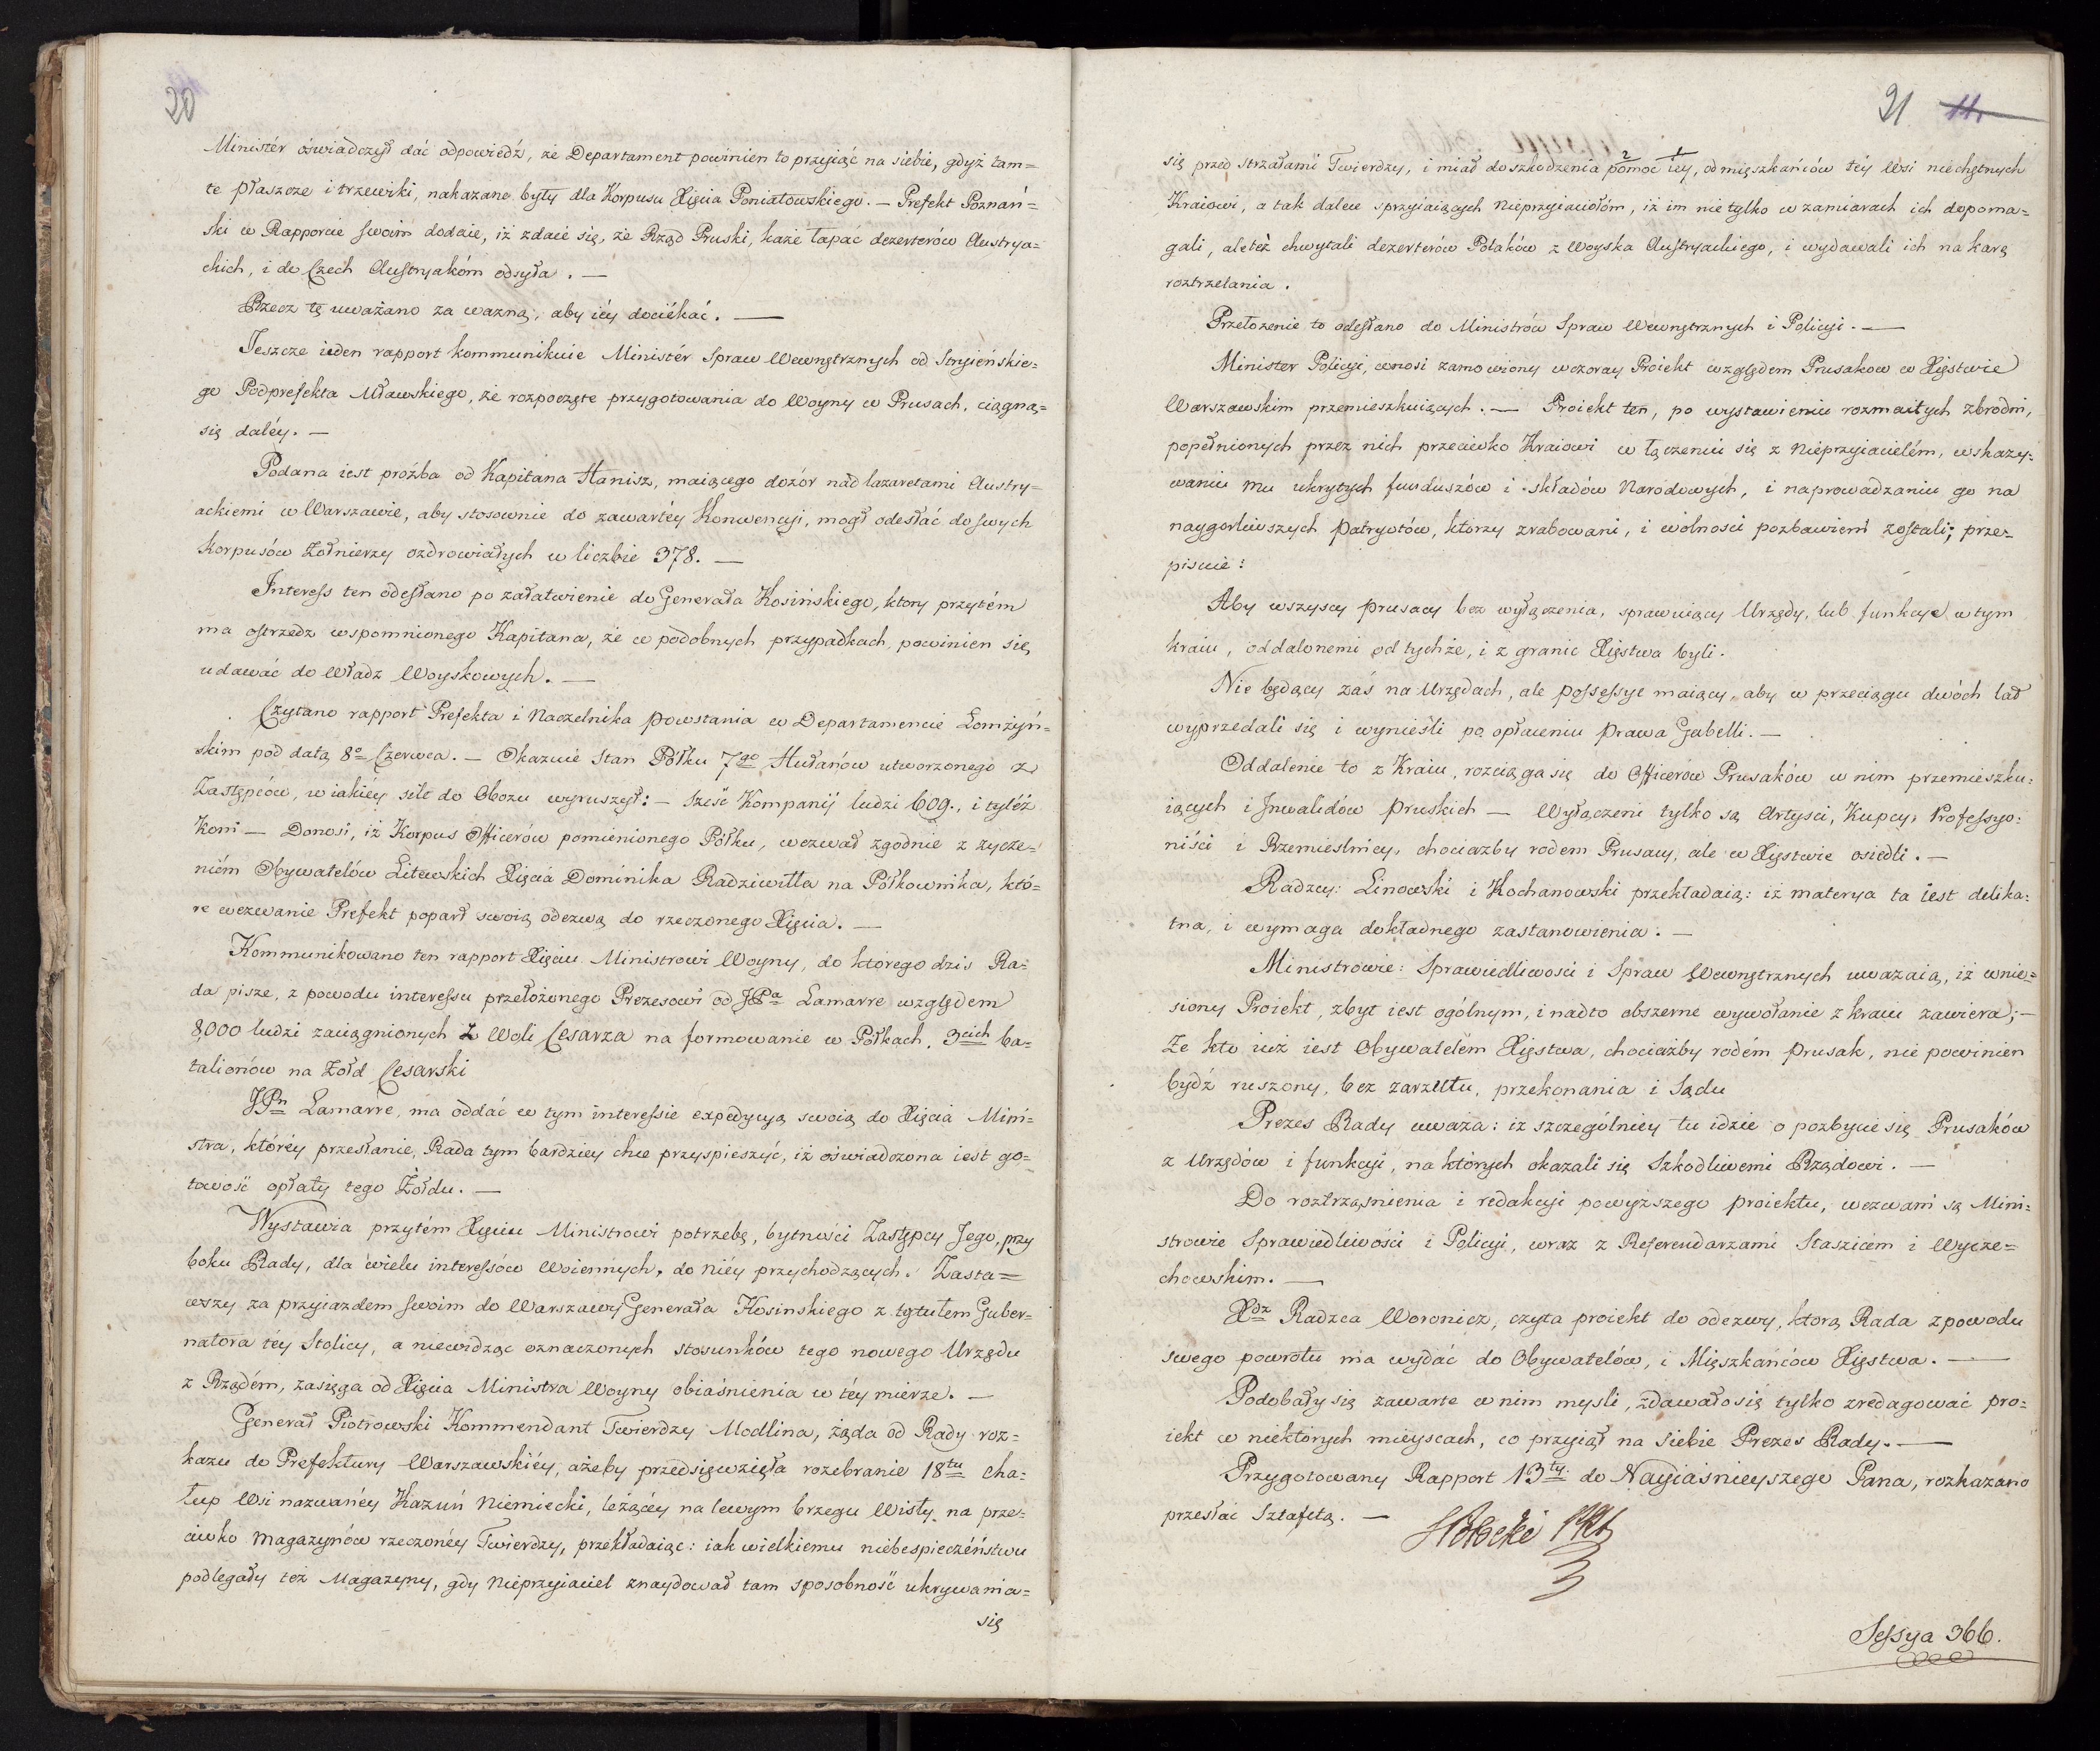 20
Ministér oświadczył dać odpowiedź, że Departament powinien to przyjąć na siebie, gdyż tam=
te płaszcze i trzewiki, nakazane były dla Korpusu Xięcia Poniatowskiego. — Prefekt Poznań=
ski w Rapporcie swoim dodaie, iż zdaie się, że Rząd Pruski, każe łapać dezerterów Austrya=
ckich, i do Czech Austryakóm odsyła. —
Rzecz tę uważano za ważną, aby iéy dociékać. —
Jeszcze ieden rapport kommunikuie Ministér Spraw Wewnętrznych od Stryieńskie=
go Podprefekta Mławskiego, że rozpoczęte przygotowania do Woyny w Prusach, ciągną=
się daléy. —
Podana iest proźba od Kapitana Hanisz, maiącego dozór nad lazaretami Austry=
ackiemi w Warszawie, aby stosownie do zawartéy Konwencyi, mogł odesłać do swych
Korpusów Żołnierzy ozdrowiałych w liczbie 378. —
Interess ten odesłano po załatwienie do Generała Kosińskiego, ktory przytém
ma ostrzedz wspomnionego Kapitana, że w podobnych przypadkach, powinien się
udawać do Władz Woyskowych. —
Czytano rapport Prefekta i Naczelnika powstania w Departamencie Łomżyń=
skim pod datą 8º Czerwca. — Okazuie Stan Półku 7go Hułanów utworzonego z
Zastępców, w iakiéy sile do Obozu wyruszył: — Sześć Kompanij ludzi 609., i tyléż
Koni — Donosi, iż Korpus Officerów pomienionego Półku, wezwał zgodnie z życze=
niém Obywatelów Litewskich Xięcia Dominika Radziwiłła na Półkownika, któ=
re wezwanie Prefekt poparł swoią odezwą do rzeczonego Xięcia. —
Kommunikowano ten rapport Xięciu Ministrowi Woyny, do ktorego dziś Ra=
da pisze, z powodu interessu przełożonego Prezesowi od JPa Lamarre względem
8,000 ludzi zaciągnionych z Woli Cesarza na formowanie w Półkach, 3cich ba=
talionów na Żołd Cesarski
JPn Lamarre, ma oddać w tym interessie expedycyą swoią do Xięcia Mini=
stra, któréy przesłanie, Rada tym bardziey chce przyspieszyć, iż oświadczona iest go=
towość opłaty tego Żołdu. —
Wystawia przytém Xięciu Ministrowi potrzebę, bytności Zastępcy Jego, przy
boku Rady, dla wielu interessów Woiennych, do niéy przychodzących. Zasta=
wszy za przyiazdem swoim do Warszawy Generała Kosinskiego z tytułem Guber=
natora téy Stolicy, a niewidząc oznaczonych stosunków tego nowego Urzędu
z Rządém, zasięga od Xięcia Ministra Woyny obiaśnienia w téy mierze. —
Generał Piotrowski Kommendant Twierdzy Modlina, żąda od Rady roz=
kazu do Prefektury Warszawskiéy, ażeby przedsięwzięła rozebranie 18tu cha=
łup Wsi nazwanéy Kazuń Niemiecki, leżącéy na lewym brzegu Wisły, na prze=
ciwko Magazynów rzeczonéy Twierdzy, przekładaiąc: iak wielkiemu niebespieczéństwu
podlegały też Magazyny, gdy Nieprzyiaciel znaydował tam sposobność ukrywania=
się
21 11.
się przed strzałami Twierdzy, i miał do szkodzenia pomoc iéy, od mięszkańców téy Wsi niechętnych
2 1
Kraiowi, a tak dalece sprzyiaiących Nieprzyiaciołóm, iż im nie tylko w zamiarach ich dopoma=
gali, ale też chwytali dezerterów Polaków z Woyska Austryackiego, i wydawali ich na karę
roztrzelania.
Przełożenie to odesłano do Ministrów Spraw Wewnętrznych i Policyi. —
Minister Policyi, wnosi zamowiony wczoray Proiekt względem Prusakow w Xięstwie
Warszawskim przemieszkuiących. — Proiekt ten, po wystawieniu rozmaitych zbrodni,
popełnionych przez nich przeciwko Kraiowi w łączeniu się z Nieprzyiacielém, wskazy=
waniu mu ukrytych funduszów i składów Narodowych, i naprowadzaniu go na
naygorliwszych Patryotów, ktòrzy zrabowani, i wolności pozbawieni zostali; prze=
pisuie:
Aby wszyscy Prusacy bez wyłączenia, sprawuiący Urzędy, lub funkcye w tym
kraiu, oddalonemi od tychże, i z granic Xięstwa byli.
Nie będący zaś na Urzędach, ale possessye maiący, aby w przeciągu dwóch lat
wyprzedali się i wynieśli po opłaceniu Prawa Gabelli. —
Oddalenie to z Kraiu, rozciąga się do Officerów Prusaków w nim przemieszku=
iących i Inwalidów Pruskich — Wyłączeni tylko są Artyści, Kupcy, Professyo=
niści i Rzemieślnicy, chociażby rodem Prusacy, ale w Xięstwie osiedli. —
Radzcy: Linowski i Kochanowski przekładaią: iż materya ta iest delika=
tna, i wymaga dokładnego zastanowienia. —
Ministrowie: Sprawiedliwości i Spraw Wewnętrznych uważaią, iż wnie=
siony Proiekt, zbyt iest ogólnym, i nadto obszerne wywołanie z kraiu zawiera; —
Że kto iuż iest Obywatelém Xięstwa, chociażby rodém Prusak, nie powinien
bydź ruszony, bez zarzutu, przekonania i Sądu
Prezes Rady uważa: iż szczególniéy tu idzie o pozbycie się Prusaków
z Urzędów i funkcyi, na których okazali się Szkodliwemi Rządowi. —
Do roztrząśnienia i redakcyi powyższego proiektu, wezwani są Mini=
strowie Sprawiedliwości i Policyi, wraz z Referendarzami Staszicém i Wycze=
chowskim. —
Xdz Radzca Woronicz, czyta proiekt do odezwy, ktorą Rada z powodu
swego powrotu ma wydać do Obywatelów, i Mięszkańców Xięstwa. —
Podobały się zawarte w nim myśli, zdawało się tylko zredagować pro=
iekt w niektorych mieyscach, co przyiął na siebie Prezes Rady. —
Przygotowany Rapport 13ty do Nayiaśnieyszego Pana, rozkazano
przesłać Sztafetą. —
SPotocki
Sessya 366.